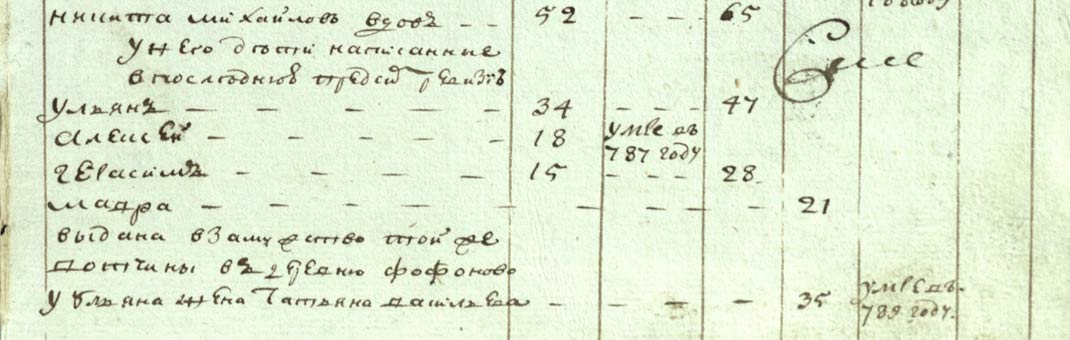 никита михайловъ вдовъ — — 52 — — 65
у него дѣти написанные
в последнюю пред сей ревизїю
ульянъ — — — — — 34 — — — 47
алексей — — — — — 18 умре въ 787 году
герасимъ — — — — — 15 — — — 28
мавра — — — — — — — — 21
выдана в замужство той же
вотчины въ деревню фофоново
у ульяна жена татьяна данилева — — — 35 умре въ 789 году.